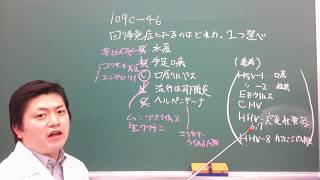 109C-46
回帰発症になるのはどれか。1つ選べ
水痘
手足口病
C 口唇ヘルペス
流行性耳下腺炎
ヘルパンギーナ
ムンプスウイルス
生ワクチン
コクサッキー
エンテロ
コクサッキー
ウイルスA群
(参考)
HSV-1 口唇
〃 -2
EBウイルス
CMV
HHV-
突発性発疹
7
HHV-8 カポジ肉腫